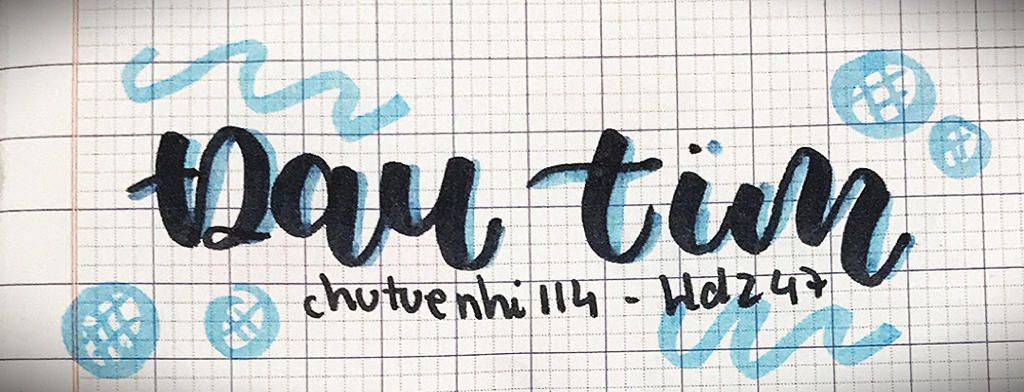 Đau tim
chutuenhi114 - Hd247